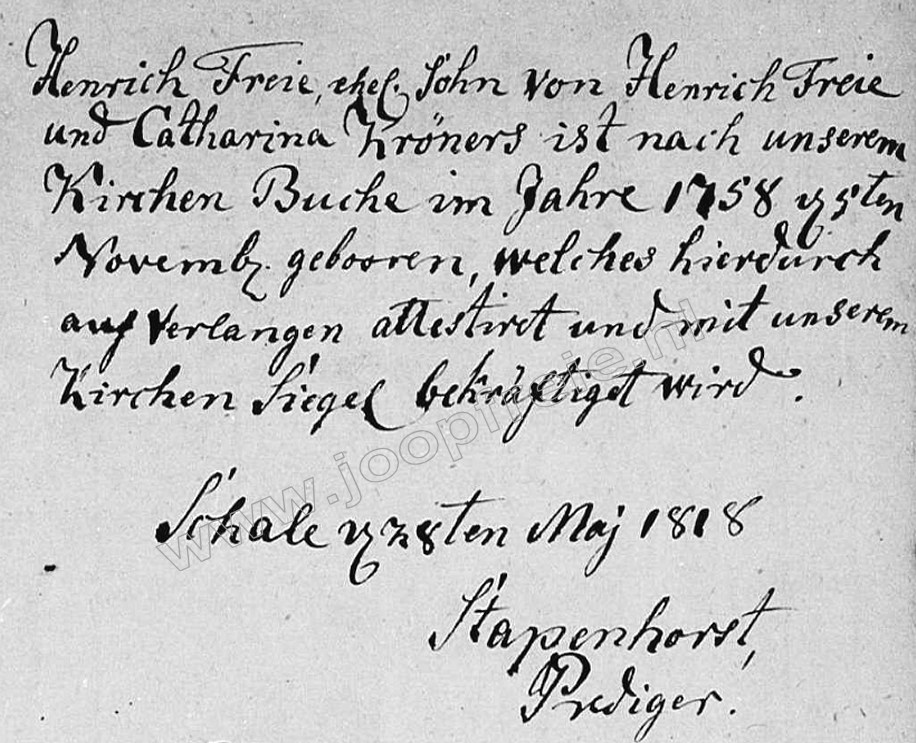 Henrich Freie, ehel. Sohn von Henrich Freie
und Catharina Kröners ist nach unserem
Kirchen Buche im Jahre 1758 d 5ten
Novemb. gebooren, welches hierdurch
auf Verlangen attestirt und mit unserem
Kirchen Siegel bekräftiget wird.
Schale d 28ten Maj 1818
Stapenhorst,
Prediger.
www.joopfreie.nl